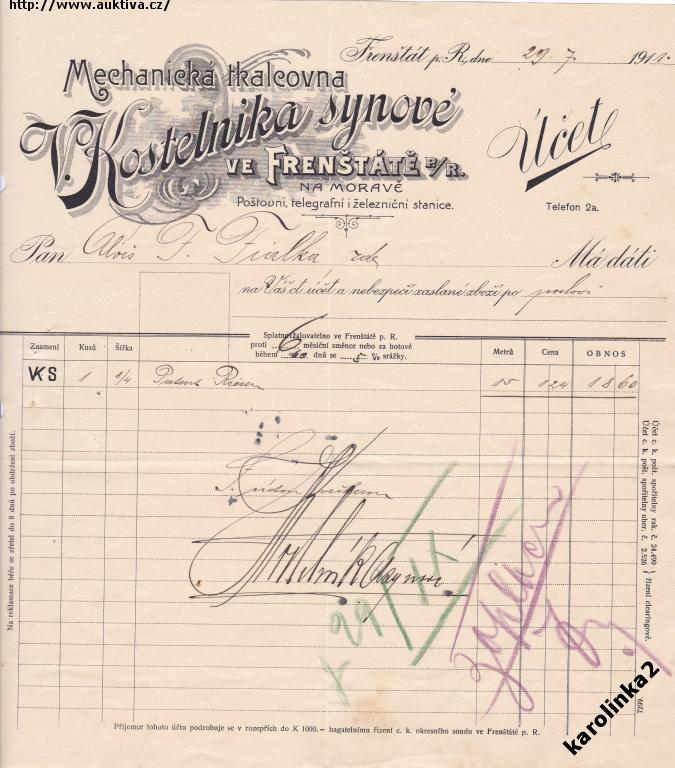 http://www.auktiva.cz/
Frenštát p. R., dne 29. 7. 1911.
Mechanická tkalcovna
V. Kostelníka synové
VE FRENŠTÁTĚ P/R.
NA MORAVĚ
Poštovní, telegrafní i železniční stanice.
Účet
Telefon 2a.
Pan Alois F. Fialka zde Má dáti
na Váš ct. účet a nebezpečí zaslané zboží po poslovi
Splatno i žalovatelno ve Frenštátě p. R.
proti 6 měsíční směnce nebo za hotové
během dnů se 5 % srážky.
Znamení Kusů Šířka Metrů Cena OBNOS
VKS 1 5/4 15 1 24 18 60
V. Kostelníka synové
29/IX
zaplaceno
Na reklamace béře se zřetel do 8 dnů po obdržení zboží.
Účet c. k. pošt. spořitelny rak. č. 24.490
Účet c. k. pošt. spořitelny uher. č. 2.526
řízení clearingové.
7299
Příjemce tohoto účtu podrobuje se v rozepřích do K 1000.– bagatelnímu řízení c. k. okresního soudu ve Frenštátě p. R.
karolinka2